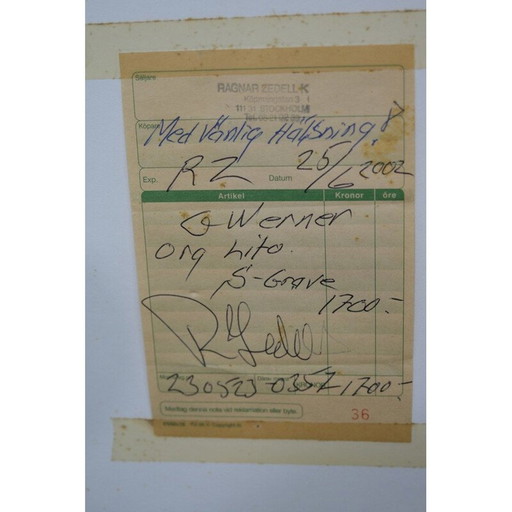 Säljare
RAGNAR ZEDELL-K
STOCKHOLM
Köpare
Med Vänlig Hälsning
Exp. RZ Datum 25/6 2002
Artikel Kronor öre
G Werner
Org Lito.
S-Grave
1700:-
R Zedell
230523-0357 1700:-
Medtag denna nota vid reklamation eller byte.
36